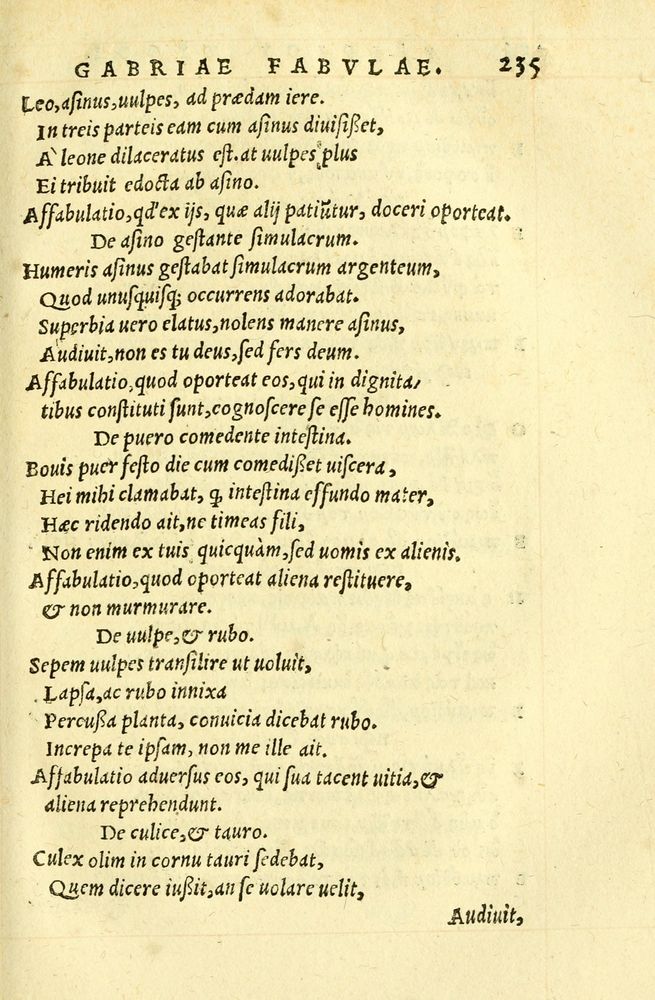 GABRIAE FABVLAE. 235
Leo, asinus, uulpes, ad prædam iere.
In treis parteis eam cum asinus diuisißet,
A` leone dilaceratus est. at uulpes plus
Ei tribuit edocta ab asino.
Affabulatio, qd' ex ijs, quæ alij patiūtur, doceri oporteat.
De asino gestante simulacrum.
Humeris asinus gestabat simulacrum argenteum,
Quod unusquisq; occurrens adorabat.
Superbia uero elatus, nolens manere asinus,
Audiuit, non es tu deus, sed fers deum.
Affabulatio, quod oporteat eos, qui in dignita/
tibus constituti sunt, cognoscere se esse homines.
De puero comedente intestina.
Bouis puer festo die cum comedißet uiscera,
Hei mihi clamabat, ꝙ intestina effundo mater,
Hæc ridendo ait, ne timeas fili,
Non enim ex tuis quicquàm, sed uomis ex alienis.
Affabulatio, quod oporteat aliena restituere,
& non murmurare.
De uulpe, & rubo.
Sepem uulpes transilire ut uoluit,
Lapsa, ac rubo innixa
Percußa planta, conuicia dicebat rubo.
Increpa te ipsam, non me ille ait.
Affabulatio aduersus eos, qui sua tacent uitia, &
aliena reprehendunt.
De culice, & tauro.
Culex olim in cornu tauri sedebat,
Quem dicere iußit, an se uolare uelit,
Audiuit,